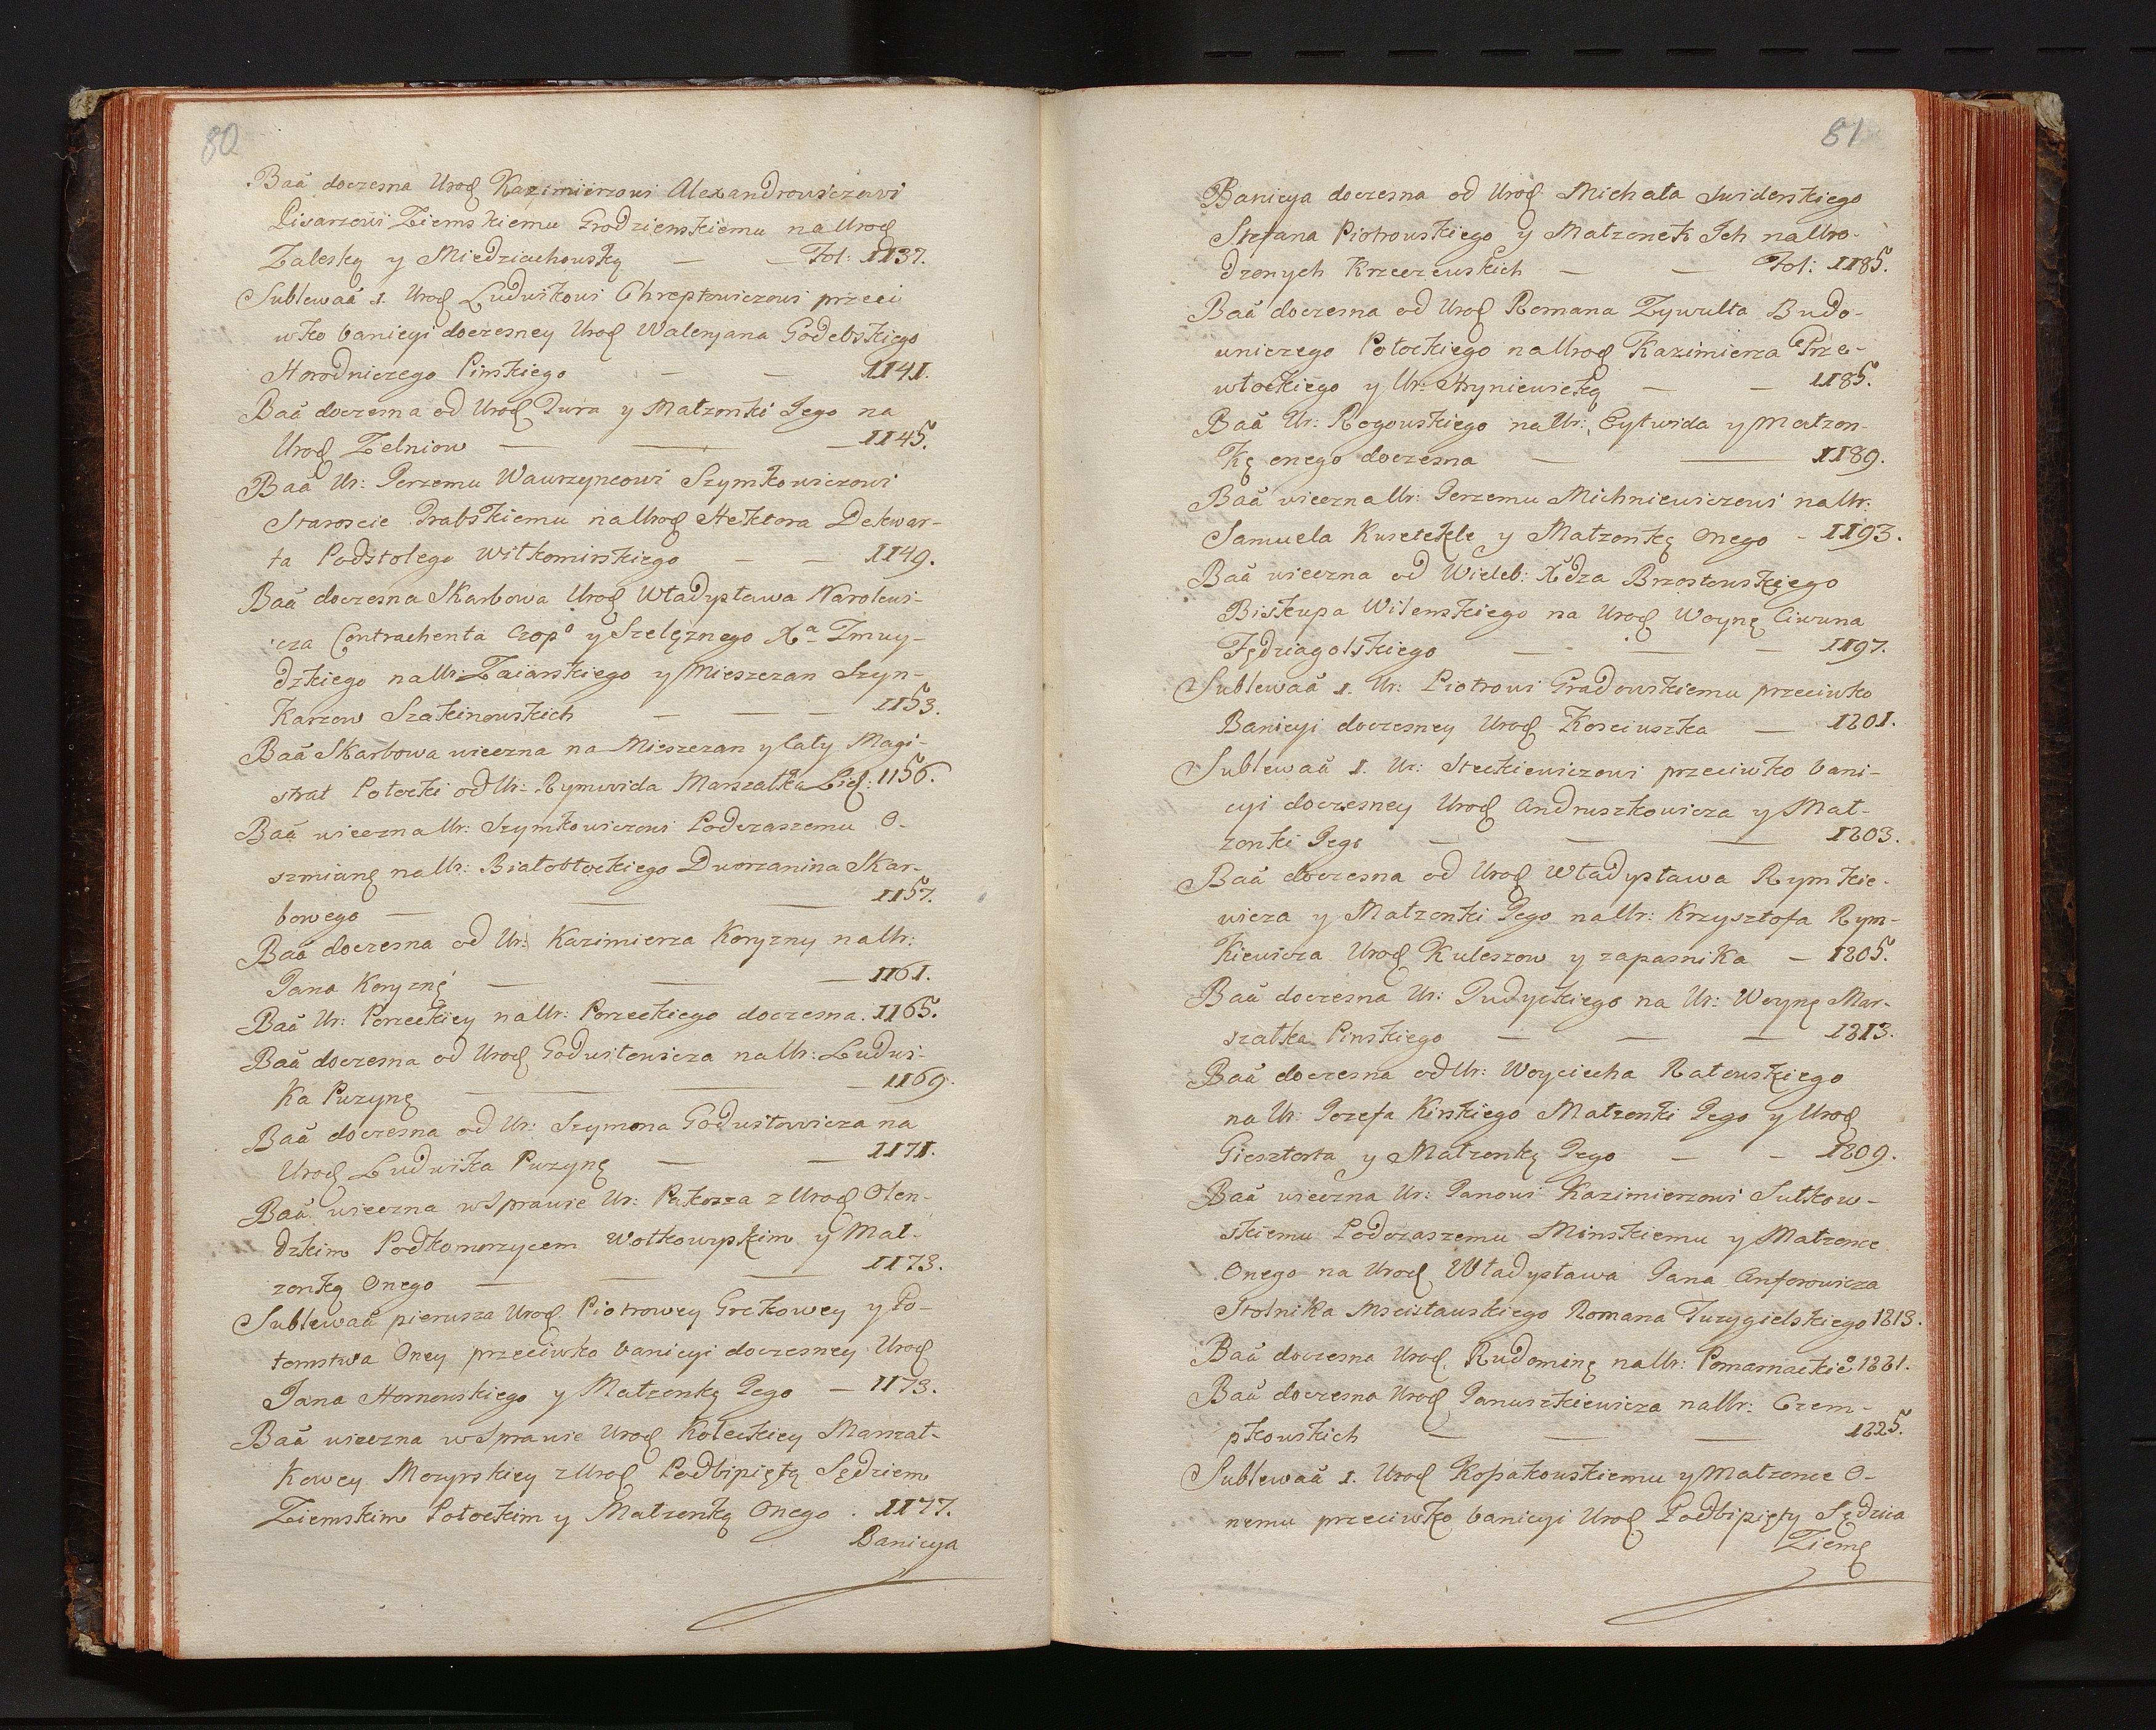 80
Baã doczesna Urod Kazimierzowi Alexandrowiczowi
Pisarzowi Ziemskiemu Grodzienskiemu na Urod
Zaleską y Miedziachowską — — Fol: 1137.
Sublewaã 1. Urod Ludwikowi Chreptowiczowi przeci
wko banicyi doczesney Urod Waleryana Godebskiego
Horodniczego Pinskiego — — 1141.
Baã doczesna od Urod Jura y Małzonki Jego na
Urod Zelniow — — — 1145.
Baã Ur: Jerzemu Wawrzyncowi Szymkowiczowi
Staroscie Grabskiemu na Urod Hektora Dekwar-
ta Podstolego Wiłkomirskiego — — 1149.
Baã doczesna Skarbowa Urod Władysława Karolewi-
cza Contrahenta Czopo y Szelęznego Xa Zmuy-
dzkiego na Ur: Zaiarskiego y Mieszczan Szyn-
karzow Szakinowskich — — — 1153.
Baã Skarbowa wieczna na Mieszczan y cały Magi-
strat Połocki od Ur: Rymwida Marszałka Lid: 1156.
Baã wieczna Ur: Szymkowiczowi Podczaszemu O-
szmianę na Ur: Białobłockiego Dworzanina Skar-
bowego — — — 1157.
Baã doczesna od Ur: Kazimierza Koryzny na Ur:
Jana Koryznę — — — 1161.
Baã Ur: Porzeckiey na Ur: Porzeckiego doczesna. 1165.
Baã doczesna od Urod Godustowicza na Ur: Ludwi-
ka Puzynę — — — 1169.
Baã doczesna od Ur: Szymona Godustowicza na
Urod Ludwika Puzynę — — 1171.
Baã wieczna w Sprawie Ur: Pakosza z Urod Olen-
dzkim Podkomorzycem Wołkowyskim y Mał-
zonką Onego — — — 1173.
Sublewaã pierwsza Urod Piotrowey Grekowey y Po-
tomstwa Oney przeciwko banicyi doczesney Urod
Jana Hornowskiego y Małzonkę Jego — 1173.
Baã wieczna w Sprawie Urod Koleckiey Marszał-
kowey Mozyrskiey z Urod Podbipiętą Sędziem
Ziemskim Połockim y Małzonką Onego . 1177.
Banicya
81
Banicya doczesna od Urod Michała Swiderskiego
Stefana Piotrowskiego y Małzonek Ich na Uro-
dzonych Krzeczewskich — — Fol: 1185.
Baã doczesna od Urod Romana Zywulta Budo-
wniczego Połockiego na Urod Kazimierza Prze-
włockiego y Ur: Hryniewicką — — 1185.
Baã Ur: Rogowskiego na Ur: Eytwida y Małzon-
kę onego doczesna — — 1189.
Baã wieczna Ur: Jerzemu Michniewiczowi na Ur:
Samuela Kusztekle y Małzonkę Onego - 1193.
Baã wieczna od Wieleb: Xdza Brzostowskiego
Biskupa Wilenskiego na Urod Woynę Ciwuna
Fędziagolskiego — — — 1197.
Sublewaã 1. Ur: Piotrowi Gradowskiemu przeciwko
Banicyi doczesney Urod Kosciuszka — 1201.
Sublewaã 1. Ur: Steckiewiczowi przeciwko bani-
cyi doczesney Urod Andruszkowicza y Mał-
zonki Jego — — — 1203.
Baã doczesna od Urod Władysława Rymkie-
wicza y Małzonki Jego na Ur: Krzysztofa Rym-
kiewicza Urod Kuleszow y zapasnika — 1205.
Baã doczesna Ur: Judyckiego na Ur: Woynę Mar-
szałka Pinskiego — — — 1213.
Baã doczesna od Ur: Woyciecha Ratowskiego
na Ur: Jozefa Kinskiego Małzonki Jego y Urod
Giesztorta y Małzonkę Jego — - 1209.
Baã wieczna Ur: Janowi Kazimierzowi Sutkow-
skiemu Podczaszemu Minskiemu y Małzonce
Onego na Urod Władysława Jana Anforowicza
Stolnika Mscisławskiego Romana Turzygielskiego 1213.
Baã doczesna Urod Rudominę na Ur: Pomarnackiẽ 1221.
Baã doczesna Urod Januszkiewicza na Ur: Czem-
pkowskich — — — 1225.
Sublewaã 1. Urod Kopakowskiemu y Małzonce O-
nemu przeciwko banicyi Urod Podbipięty Sędzia
Ziemę